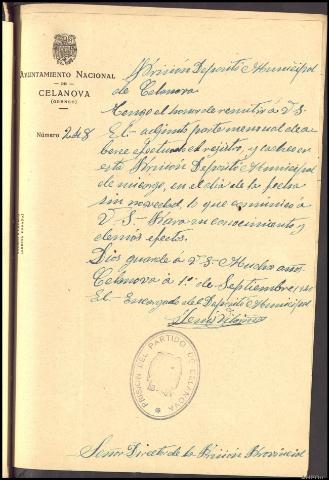 AYUNTAMIENTO NACIONAL
DE
CELANOVA
(ORENSE)
Número 208
Prisión Deposito Municipal
de Celanova
Tengo el honor de remitir á V.S.
El adjunto parte mensual de
efectuado el registro, y cacheo en
este Prisión Deposito Municipal
de mi cargo, en el dia de la fecha
sin novedad, lo que comunico á
V. S. Para su conocimiento y
demás efectos.
Dios guarde á V.S. Muchos años
Celanova á 1º de Septiembre
El Encargado del Deposito Municipal
PRISIÓN DEL PARTIDO DE CELANOVA
Señor Director de la Prisión Provincial